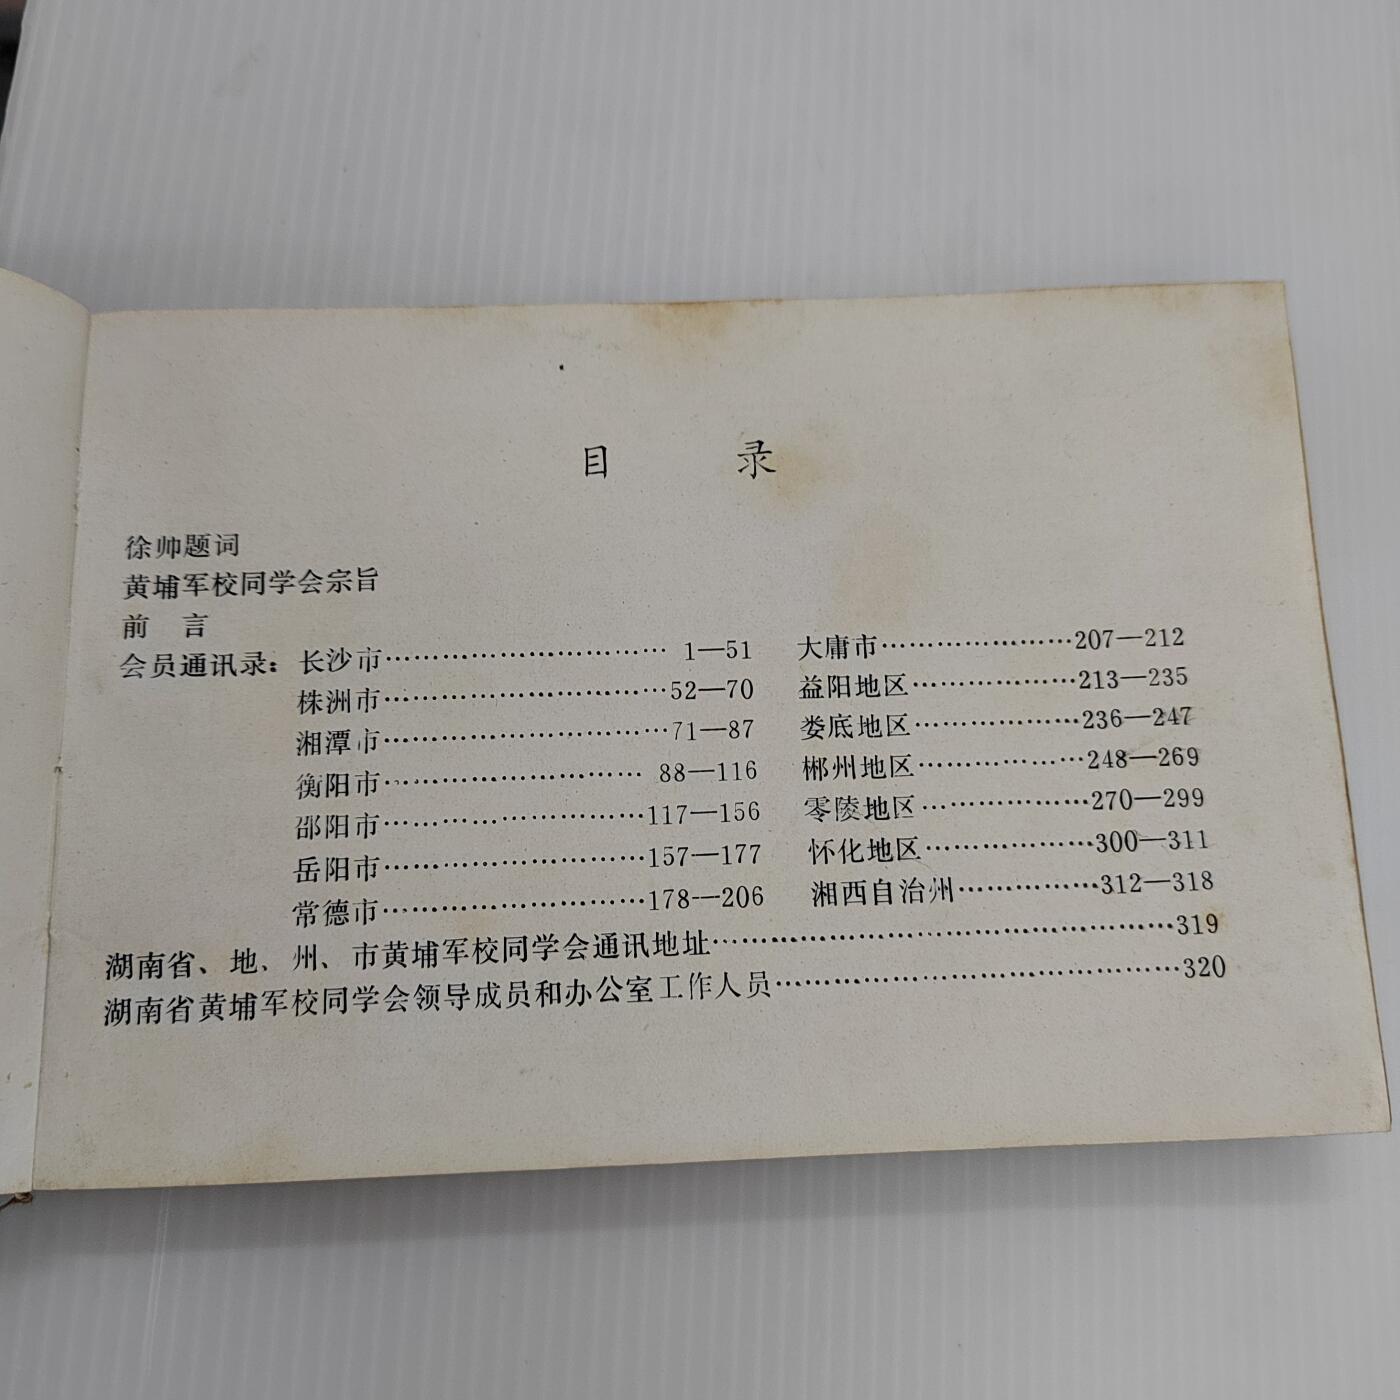 目 录
徐帅题词
黄埔军校同学会宗旨
前 言
会员通讯录：长沙市…………………………1—51
株洲市…………………………52—70
湘潭市…………………………71—87
衡阳市………………………88—116
邵阳市………………………117—156
岳阳市………………………157—177
常德市………………………178—206
大庸市…………………207—212
益阳地区………………213—235
娄底地区………………236—247
郴州地区………………248—269
零陵地区………………270—299
怀化地区………………300—311
湘西自治州……………312—318
湖南省、地、州、市黄埔军校同学会通讯地址…………………………………………319
湖南省黄埔军校同学会领导成员和办公室工作人员……………………………………320